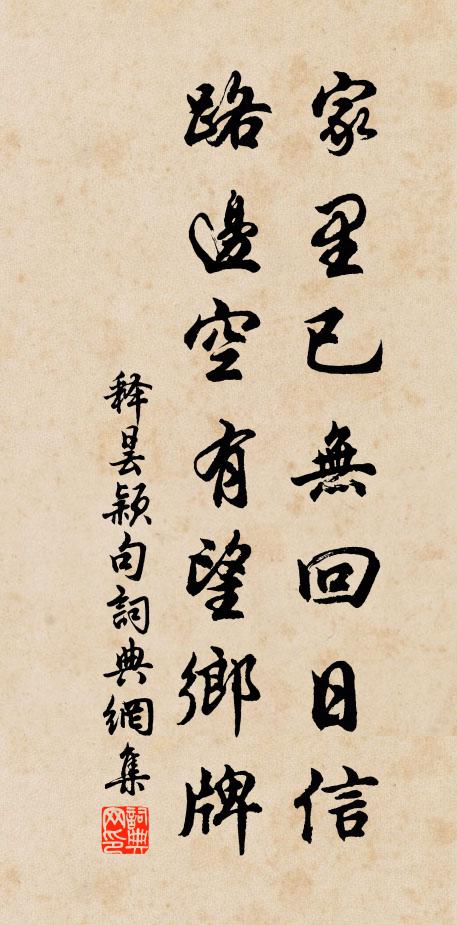 家里已無回日信
路邊空有望鄉牌
释昙颖句詞典網集
詞典网印